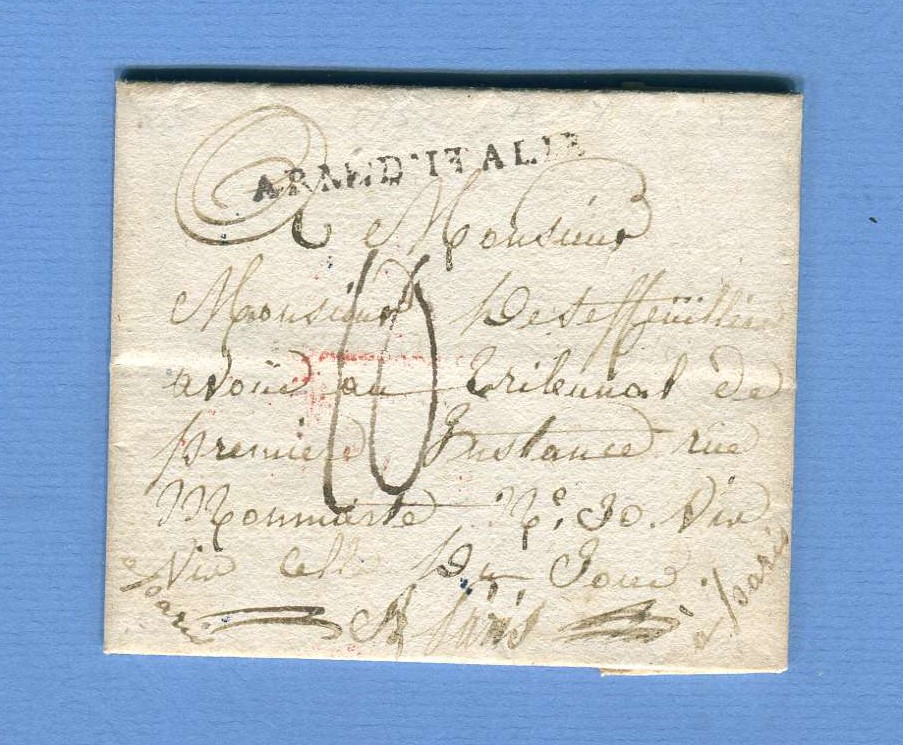 ARM D'ITALIE
A Monsieur
Monsieur
10
avoüé au tribunal de
premiere Instance rue
Monmarte N° 30. Vis
Vis celle Du Jour.
a paris
A paris
a paris